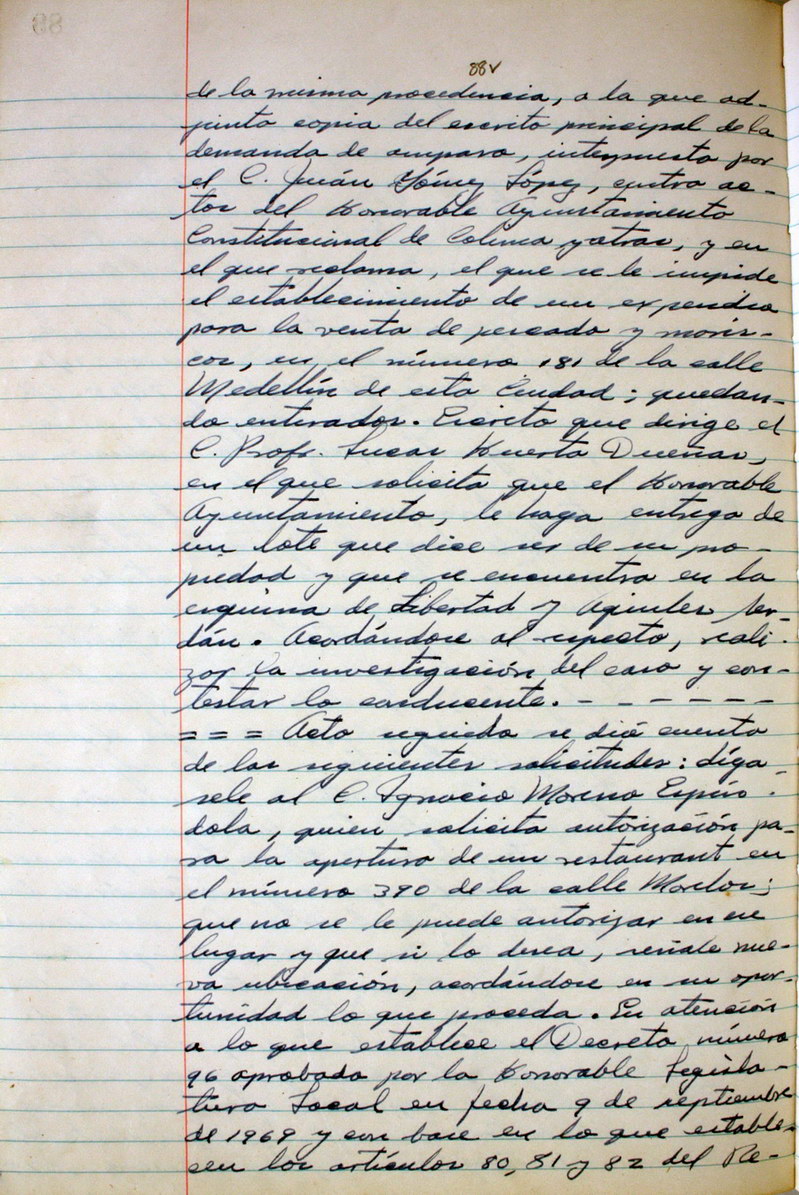 88v
de la misma procedencia, a la que ad-
junta copia del escrito principal de la
demanda de amparo, interpuesta por
el C. Juán Gómez López, contra ac-
tos del Honorable Ayuntamiento
Constitucional de Colima y otras, y en
el que reclama, el que se le impide
el establecimiento de un expendio
para la venta de pescado y maris-
cos, en el número 181 de la calle
Medellín de esta Ciudad; quedan-
do enterados. Escrito que dirige el
C. Profr. Lucas Huerta Dueñas,
en el que solicita que el Honorable
Ayuntamiento, le haga entrega de
un lote que dice ser de su pro-
piedad y que se encuentra en la
esquina de Libertad y Aquiles Ser-
dán. Acordándose al respecto, reali-
zar la investigación del caso y con-
testar lo conducente. - - - - - - -
= = = Acto seguido se dió cuenta
de las siguientes solicitudes: díga
sele al C. Ignacio Moreno Espín-
dola, quien solicita autorización pa-
ra la apertura de un restaurant en
el número 390 de la calle Morelos;
que no se le puede autorizar en ese
lugar y que si lo desea, señale nue-
va ubicación, acordándose en su opor-
tunidad lo que proceda. En atención
a lo que establece el Decreto número
96 aprobado por la Honorable Legisla-
tura Local en fecha 9 de septiembre
de 1969 y con base en lo que estable-
cen los artículos 80, 81 y 82 del Re-